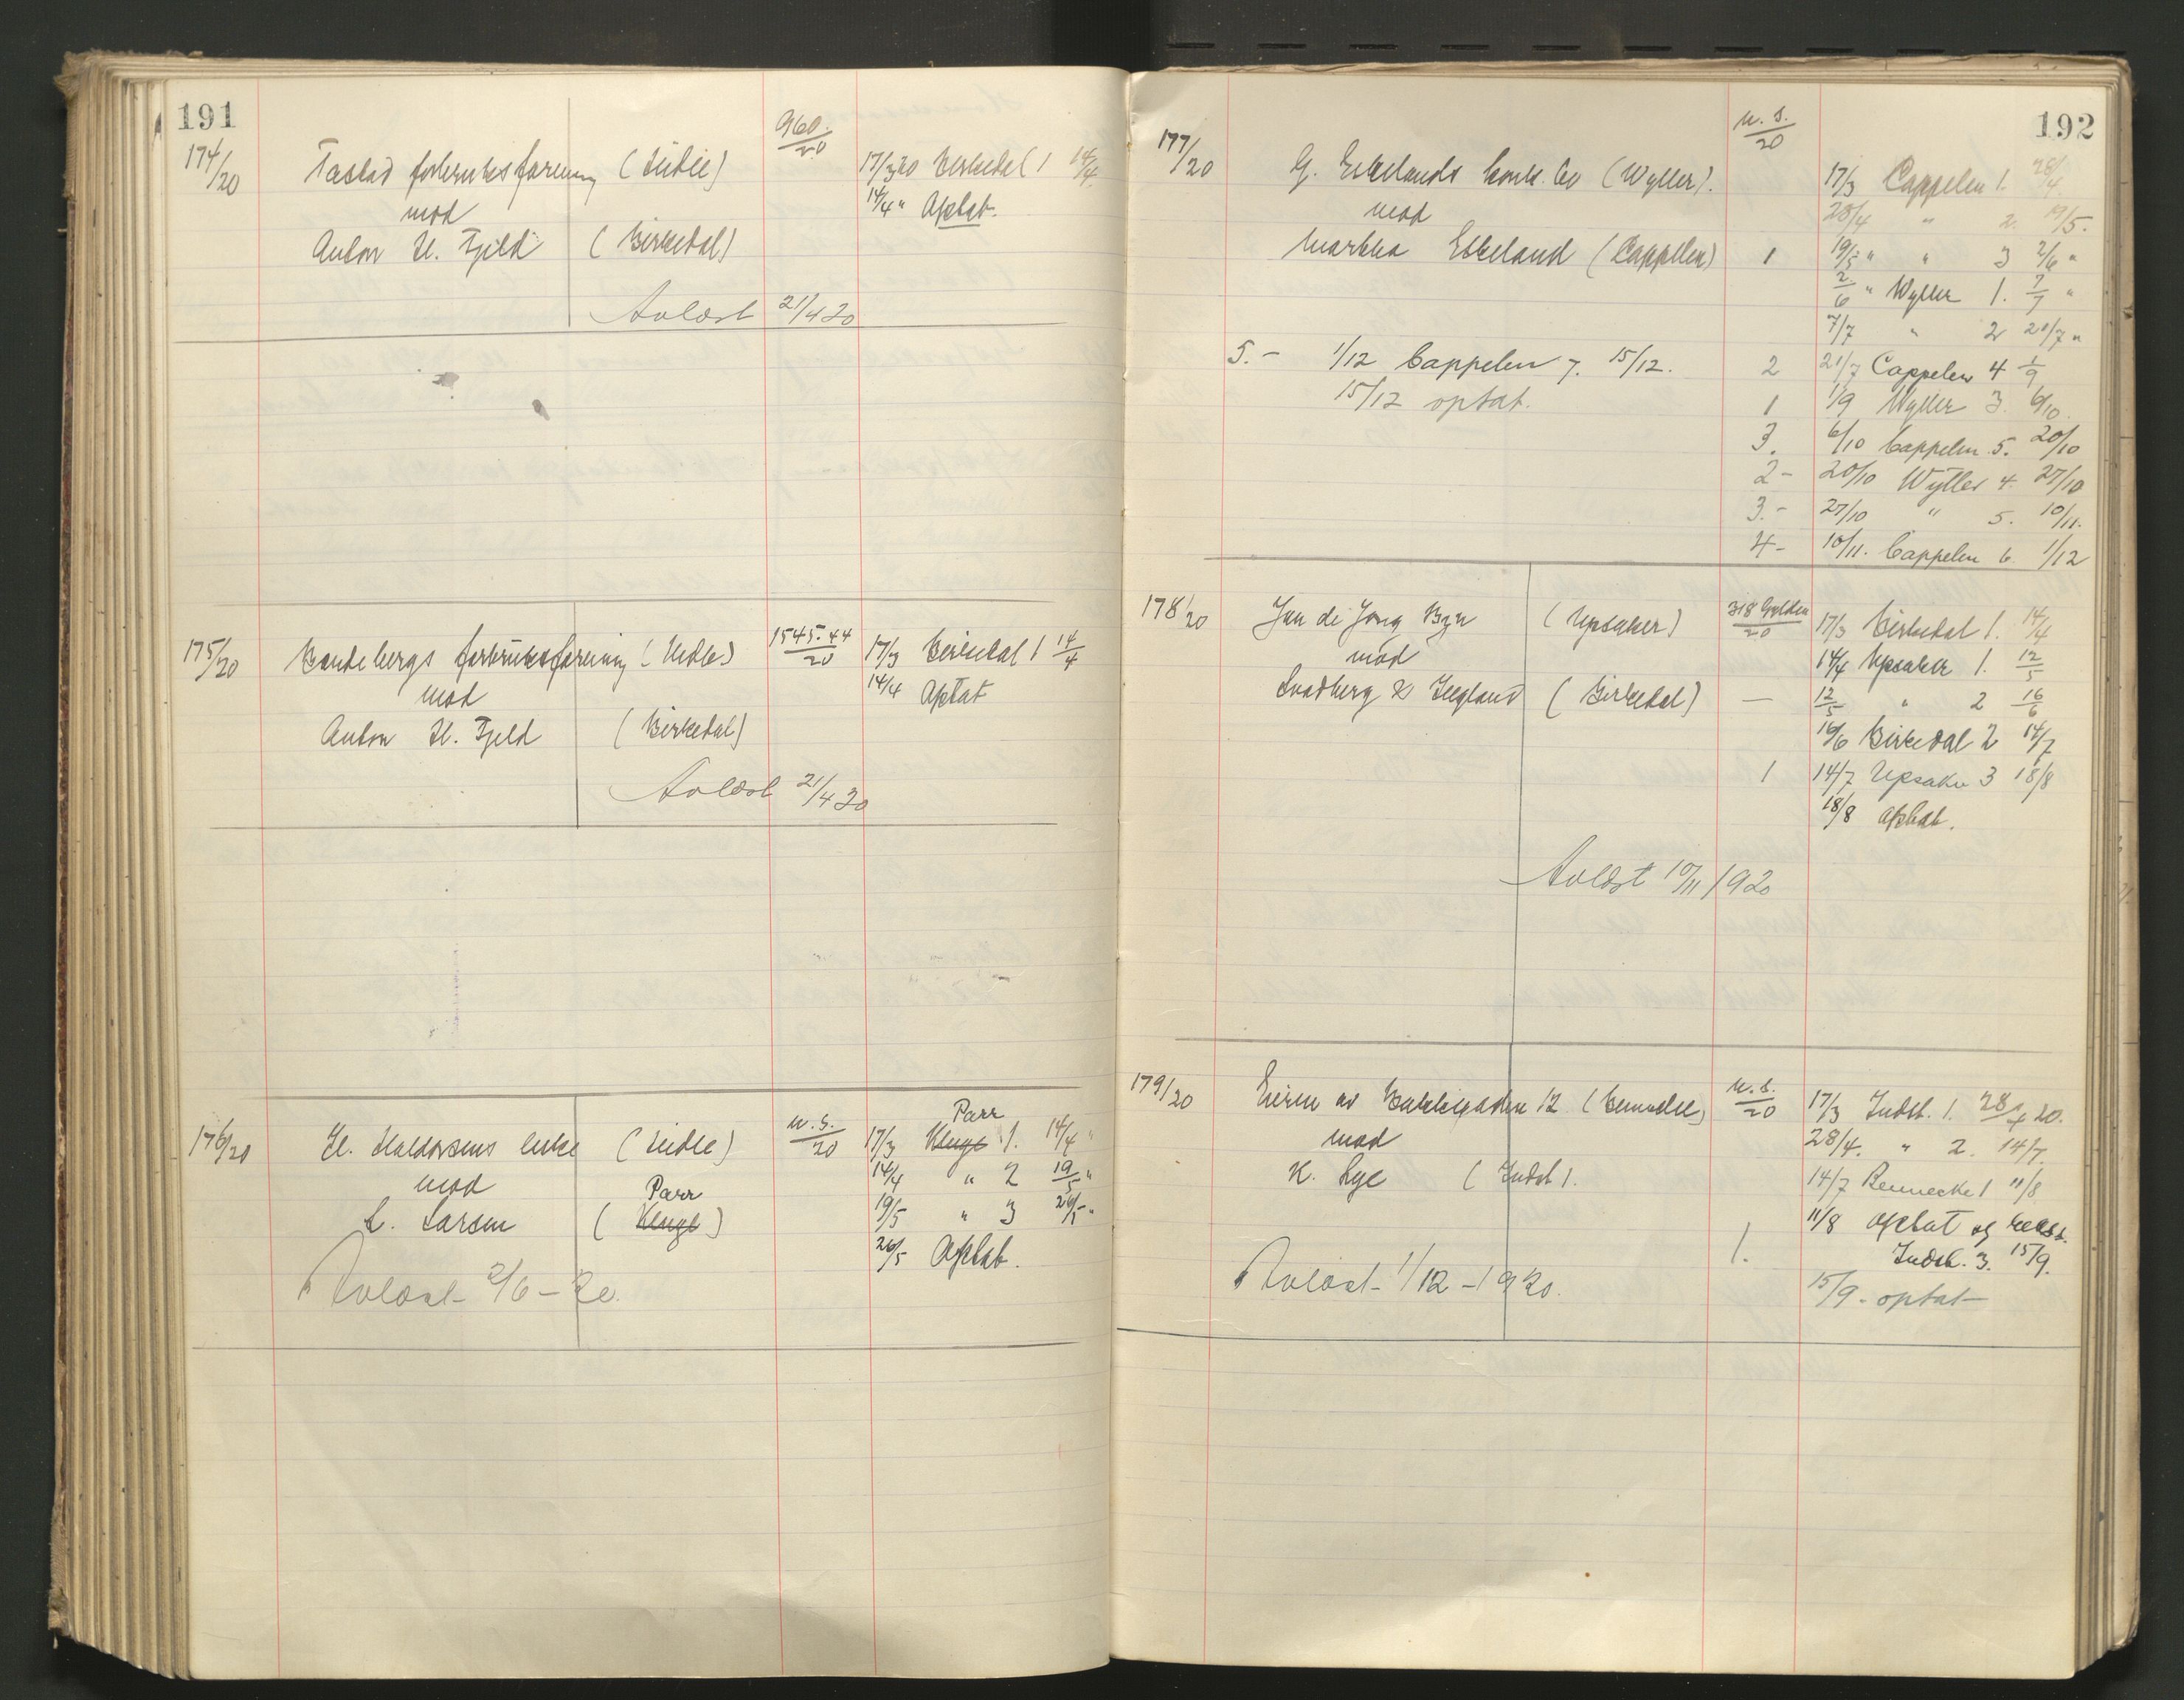 191
174/20
960.-/20
Tastad forbruksforening (Lidle)
mod
Anton H. Fjeld (Birkedal)
17/3 20 Birkedal 1 14/4
14/4 " Optat.
Avlæst 21/4 20
175/20
forbruksforening
mod
Anton H. Fjeld (Birkedal)
1545.44/20
17/3 Birkedal 1 14/4
14/4 Optat
Avlæst 21/4 20
176/20
H. Haldorsens enke
mod
L. Larsen (Kluge) Parr
u.s./20
Parr
17/3 Kluge 1. 14/4 "
14/4 " 2 19/5 "
19/5 " 3 26/5 "
26/5 Optat.
Avlæst 2/6 - 20.
192
177/20
G. Eskelands konk. bo (Wyller).
mod
Martha Eskeland (Cappelen)
u.s./20
17/3 Cappelen 1. 28/4
28/4 " 2. 19/5.
1 19/5 " " 3 2/6 "
2/6 " Wyller 1. 7/7 "
7/7 " 2 21/7 "
2 21/7 Cappelen 4 1/9
1 1/9 Wyller 3. 6/10.
3. 6/10 Cappelen 5. 20/10
2- 20/10 Wyller 4. 27/10
3.- 27/10 " 5. 10/11.
4- 10/11. Cappelen 6. 1/12
5.- 1/12 Cappelen 7. 15/12.
15/12 optat.
178/20
Jan de Jong (Upsaker)
mod
Svadberg & (Birkedal)
318 Gylden/20
17/3 Birkedal 1. 14/4
14/4 Upsaker 1. 12/5
— 12/5 " 2 16/6
16/6 Birkedal 2 14/7
1 14/7 Upsaker 3 18/8
18/8 optat.
Avlæst 10/11 1920
179/20
Eieren av 12
mod
K. Lye (Indst.).
u.s./20
17/3 Indst. 1. 28/4 20.
28/4. " 2. 14/7.
14/7 Bennecke 1 11/8
11/8 optat og
1. Indst. 3. 15/9.
15/9 - optat
Avlæst 1/12 - 1920.